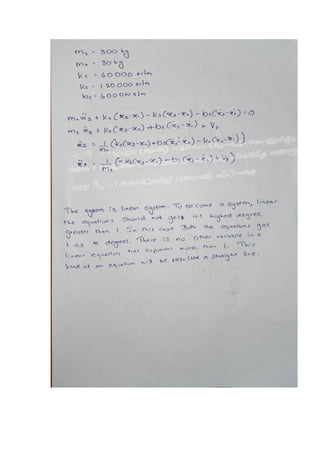 ms = 300 kg
mu = 30 kg
ks = 60000 N/m
kt = 120000 N/m
bs = 6000 Ns/m
mu ẍ2 + kt (x2 - x1) - ks (x3 - x2) - bs (ẋ3 - ẋ2) = 0
ms ẍ3 + ks (x3 - x2) + bs (ẋ3 - ẋ2) = Up
ẍ2 = 1/mu (ks (x3 - x2) + bs (ẋ3 - ẋ2) - kt (x2 - x1))
ẍ3 = 1/ms (- ks (x3 - x2) - bs (ẋ3 - ẋ2) + Up)
The system is linear system. To become a system, linear
the equations should not gets its highest degree
greater than 1. In this case Both the equations got
1 as x degrees. There is no other variable in a
linear equation has exponent more than 1. This
kind of an equation will be resulted a straight line.